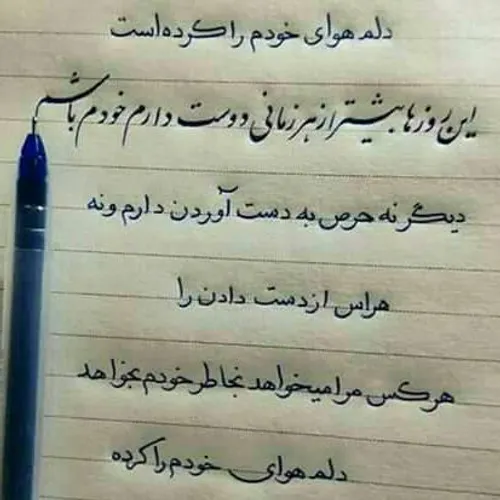 دلم هوای خودم را کرده است
این روزها بیشتر از هر زمانی دوست دارم خودم باشم
دیگر نه حرص به دست آوردن دارم و نه
هراس از دست دادن را
هرکس مرا میخواهد بخاطر خودم بخواهد
دلم هوای خودم را کرده